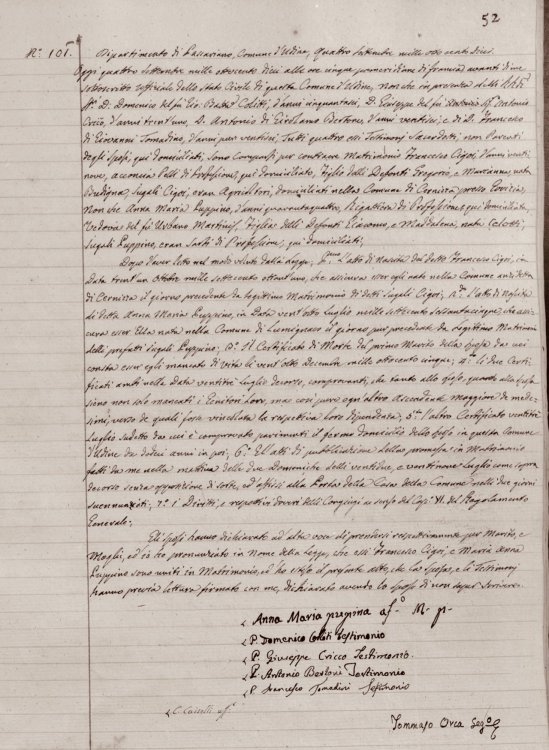 52
N.° 101.
Dipartimento di Passariano, Comune d'Udine, quattro Settembre mille otto cento dieci.
Oggi quattro Settembre mille ottocento dieci alle ore cinque pomeridiane di francia avanti di me
sottoscritto Ufficiale dello Stato Civile di questa Comune d'Udine, non che in presenza delli
D. Domenico del fù Gio. Batta d'anni cinquantasei, D. Giuseppe del fù Antonio
Cricco, d'anni trent'uno, D. Antonio di Girolamo Bertoni, d'anni ventisei, e di D. Francesco
di Giovanni Tomadini, d'anni pur ventisei, Tutti quattro essi Testimonj Sacerdoti non Parenti
degli Sposi, qui domiciliati, Sono Comparsi per contraere Matrimonio Francesco Cigoi, d'anni venti
nove, acconcia Pelli di Professione, qui domiciliato, Figlio delli Defonti Gregorio, e Marianna, nata
Jugali Cigoi, eran Agricoltori, domiciliati nella Comune di Cerniza presso Gorizia,
Non che Anna Maria Puppino, d'anni quarantaquattro, Rigattiera di Professione, qui domiciliata,
Vedova del fù Urbano Figlia delli Defonti Giacomo, e Maddalena, nata
Jugali Puppino, eran Sarti di Professione, qui domiciliati;
Dopo d'aver letto nel modo voluto dalla Legge, P.mo L'atto di Nascita del detto Francesco Cigoi, in
data trent'un ottobre mille settecento ottant'uno, che assicura esser egli nato nella Comune anzidetta
di Cerniza il giorno precedente da legitimo Matrimonio di detti Jugali Cigoi; 2.° L'atto di Nascita
di detta Anna Maria Puppino, in data vent'otto Luglio mille settecento sessantacinque, che assi-
cura esser Ella nata nella Comune di Lumignacco il giorno pur precedente da Legittimo Matrimonio
delli prefatti Jugali Puppino; 3.° Il Certificato di Morte del primo Marito della Sposa da cui
consta esser egli mancato di Vita li vent'otto Decembre mille ottocento cinque; 4.° li due Certi-
ficati ambi nella data ventitre Luglio decorso, comprovanti, che tanto allo sposo, quanto alla sposa
siano non solo mancati i Genitori loro, ma così pure ogni altro Ascendente maggiore de mede-
simi, verso de quali fosse vincolata la respettiva loro dipendenza; 5.° L'altro Certificato ventitre
Luglio sudetto da cui è comprovato parimenti il fermo domicilio dello sposo in questa Comune
d'Udine da dodeci anni in poi; 6.° Gli atti di pubblicazione della promessa in Matrimonio
fatti da me nella mattina delle due Domeniche delli ventidue, e ventinove Luglio come sopra
decorso senza opposizione di sorte, ed affissi alla Porta della Casa della Comune nelli due giorni
suenunziati; 7.° I Diritti, e respettivi doveri delli Conjugi a senso del Cap.° VI. del Regolamento
Generale;
Gli sposi hanno dichiarato ad alta voce di prendersi respettivamente per Marito, e
Moglie, ed io hò pronunziato in Nome della Legge, che essi Francesco Cigoi, e Maria Anna
Puppino sono uniti in Matrimonio, ed hò esteso il presente atto, che la sposa, e li Testimonj
hanno previa lettura firmato con me, dichiarato avendo lo sposo di non saper scrivere.
Anna Maria
P. Domenico Testimonio
P. Giuseppe Cricco Testimonio.
P. Antonio Bertoni Testimonio
P. Francesco Tomadini Testimonio
Tommaso Orca Seg.o